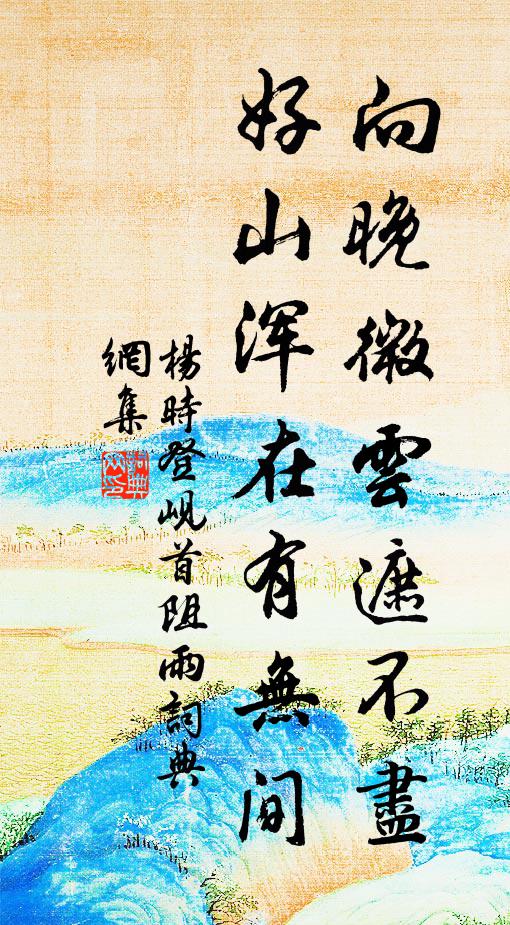 向晚微雲遮不盡
好山浑在有無間
楊時登峴首阻雨詞典
網集